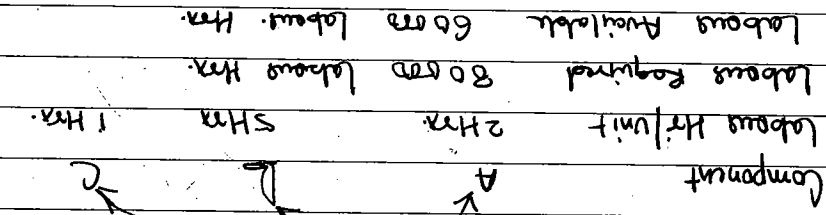 Component A B C
Labour Hr/Unit 2 Hrs 5 Hrs 1 Hrs.
Labour Required 80000 Labour Hrs.
Labour Available 60000 Labour Hrs.